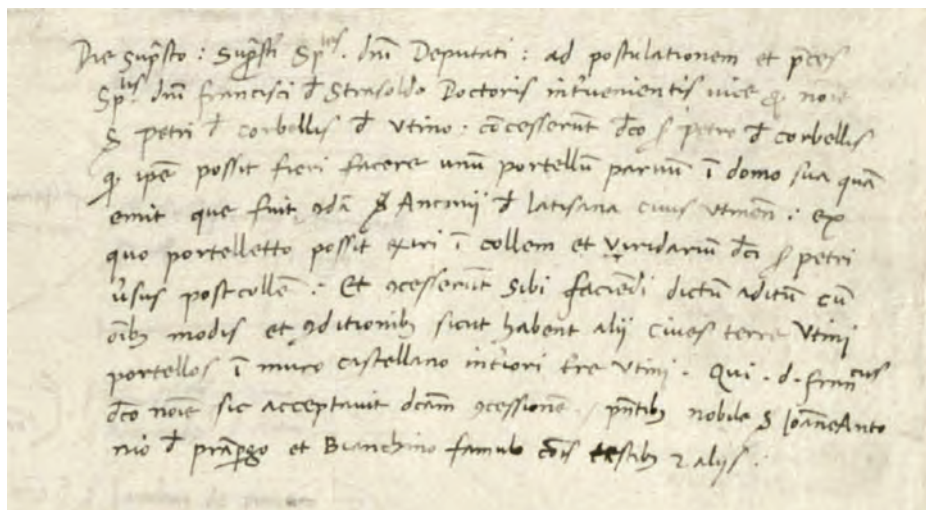 Die sup̄sto : Sup̄sti Sp.les dn̄i Deputati : ad postulationem et p̄ces
Sp.lis dn̄i Francisci đ Strasoldo Doctoris int'uenientis uice & noīe
S Petri đ corbellis đ Vtino : cōcesserūt dc̄o S petro đ corbellis
ꝙ ip̄e possit fieri facere unū portellū paruū ī domo sua quā
emit que fuit ꝯdā S Antonij đ latisana ciuis Vtinen̄ : ex
quo portelletto possit exiri ī collem et viridariū dc̄i S petri
ūsus postcollē : Et ꝯcesserūt sibi faciēdi dictū aditū cū
oīb; modis et ꝯditionib; sicut habent alij ciues terre Vtini
portellos ī muro castellano int'iori tr̄e Vtini . Qui . d . Franc̄us
dc̄o noīe sic acceptauit dc̄am ꝯcessionē . pn̄tib; nobile S Ioāne Anto
nio đ prāp̄go et Bianchino famulo cōis testib; ⁊ alijs .